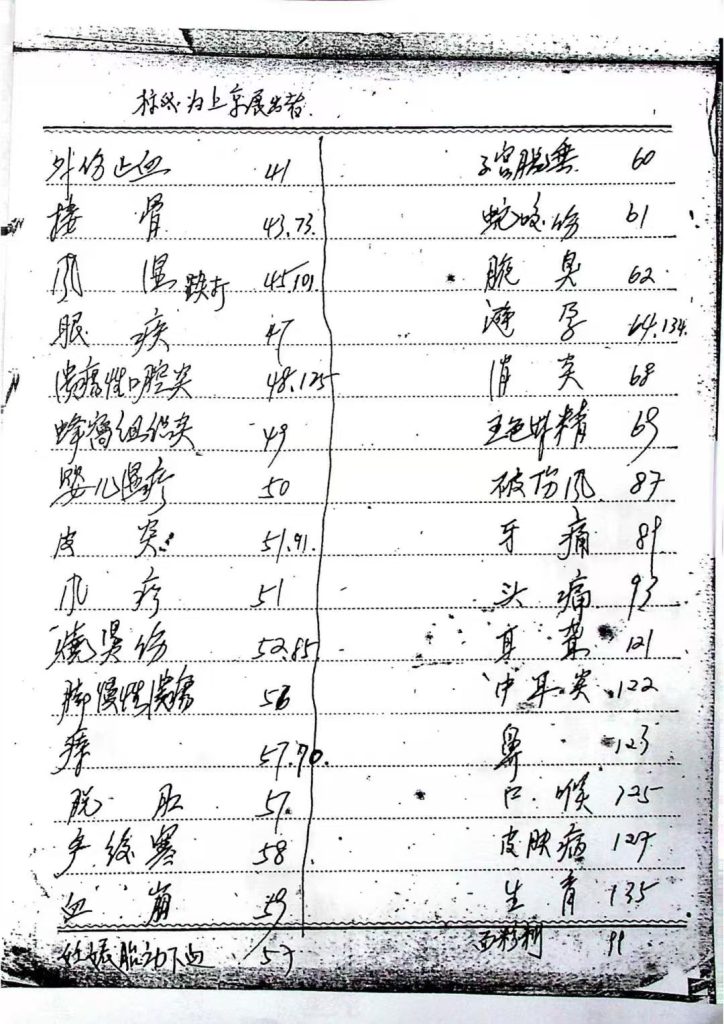 为上京展出者
外伤止血 41
接骨 43.73.
风湿 跌打 45.101
眼疾 47
溃疡性口腔炎 48.125
蜂窝组织炎 49
婴儿湿疹 50
皮炎 51.91.
风疹 51
烧烫伤 52.85.
脚慢性溃疡 56
痔 57.70.
脱肛 57.
59
血崩 59
妊娠胎动下血 57
子宫脱垂 60
蛇咬伤 61
腋臭 62
避孕 64.134.
消炎 68
69
破伤风 87
牙痛 89
头痛 93
耳聋 121
中耳炎 122
鼻 123
口喉 125
皮肤病 127
生育 135
99